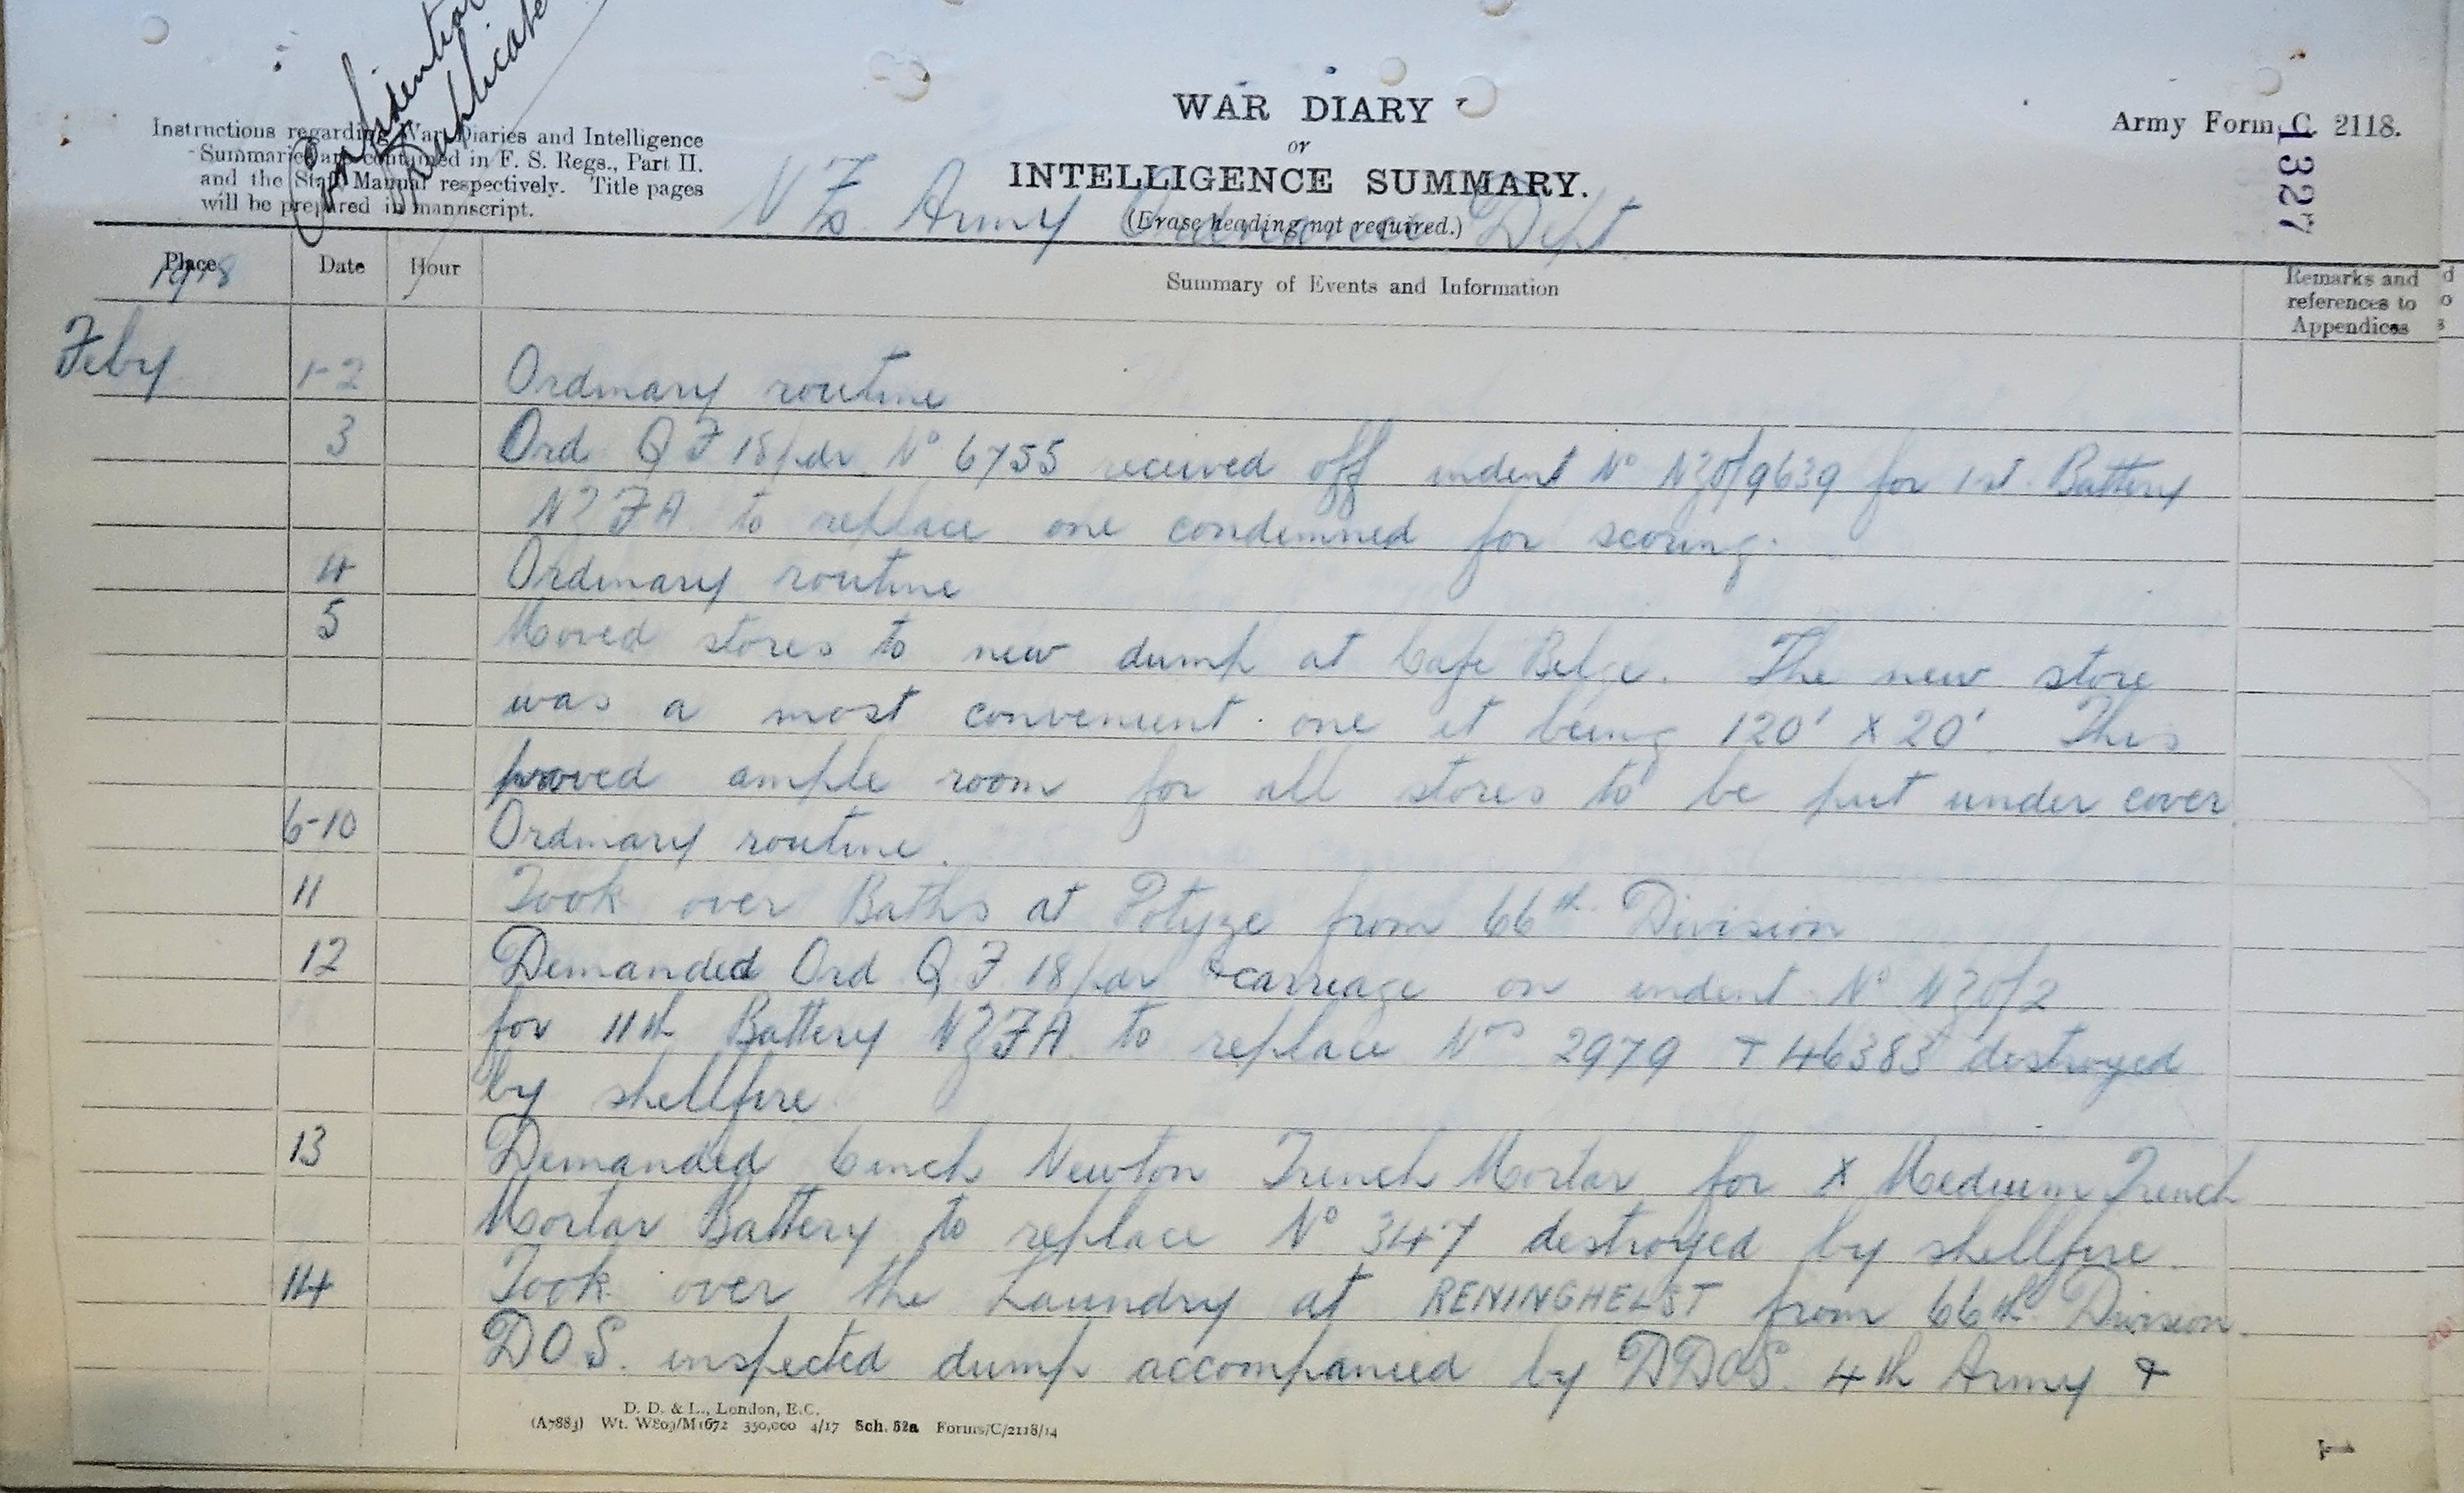 Confidential
Duplicate
Instructions regarding War Diaries and Intelligence
Summaries are contained in F. S. Regs., Part II.
and the Staff Manual respectively. Title pages
will be prepared in manuscript.
WAR DIARY
or
INTELLIGENCE SUMMARY.
(Erase heading not required.)
NZ Army Ordnance Dept
Army Form C. 2118.
1327
Place Date Hour Summary of Events and Information Remarks and
references to
Appendices
1918
Feby 1-2 Ordinary routine
3 Ord Q F 18/pdr Nº 6755 received off indent Nº NZO/9639 for 1st Battery
NZFA to replace one condemned for scoring.
4 Ordinary routine
5 Moved stores to new dump at Cafe Belge. The new store
was a most convenient one it being 120' x 20'. This
proved ample room for all stores to be put under cover
6-10 Ordinary routine.
11 Took over Baths at Potyze from 66th Division
12 Demanded Ord Q F 18/pdr & carriage on indent Nº NZO/2
for 11th Battery NZFA to replace Nos 2979 & 46383 destroyed
by shellfire
13 Demanded 6inch Newton Trench Mortar for X Medium Trench
Mortar Battery to replace Nº 347 destroyed by shellfire.
14 Took over the Laundry at RENINGHELST from 66th Division.
DOS. inspected dump accompanied by DDOS. 4th Army &
D. D. & L., London, E.C.
(A7883) Wt. W809/M1672 350,000 4/17 Sch. 52a Forms/C/2118/14
1